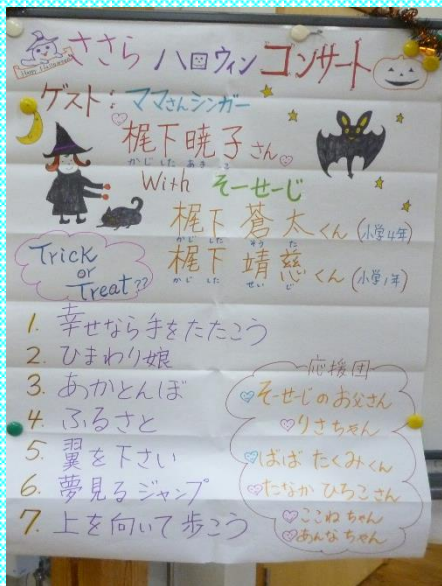 Happy Halloween
ささら ハロウィン コンサート
ゲスト：ママさんシンガー
梶下暁子さん
かじしたあきこ
With そーせーじ
梶下 蒼太くん（小学4年）
かじした そうた
梶下 靖慈くん（小学1年）
かじした せいじ
Trick
or
Treat??
1. 幸せなら手をたたこう
2. ひまわり娘
3. あかとんぼ
4. ふるさと
5. 翼を下さい
6. 夢見るジャンプ
7. 上を向いて歩こう
応援団
そーせーじのお父さん
りさちゃん
ばばたくみくん
たなかひろこさん
ここねちゃん
あんなちゃん